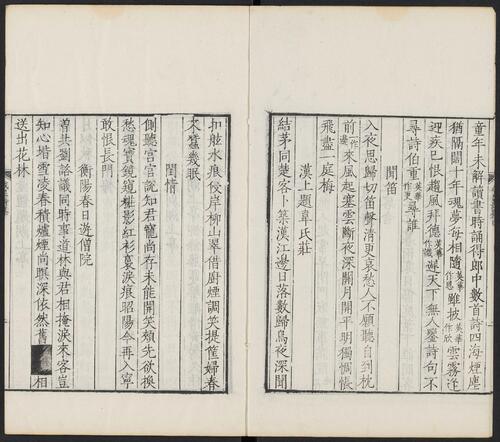 童年未解讀書時誦得郎中數首詩四海煙塵
猶隔闊十年魂夢每相隨英華作思雖披英華作欣雲霧逢
迎疾已恨趨風拜德英華作識遲天下無人鑒詩句不
尋詩伯重英華作更尋誰
聞笛
入夜思歸切笛聲清更哀愁人不願聽自到枕
前一作來風起塞雲斷夜深關月開平明獨惆悵
飛盡一庭梅
漢上題韋氏莊
結茅同楚客卜築漢江邊日落數歸鳥夜深聞
扣舷水痕侵岸柳山翠借廚煙調笑提筐婦春
來蠶幾眠
閨情
側聽宮官說知君寵尚存未能開笑頰先欲換
愁魂寶鏡窺妝影紅衫裛淚痕昭陽今再入寧
敢恨長門
衡陽春日遊僧院
曾共劉諮議同時事道林與君相掩淚來客豈
知心堦雪凌春積爐煙向暝深依然舊相
送出花林